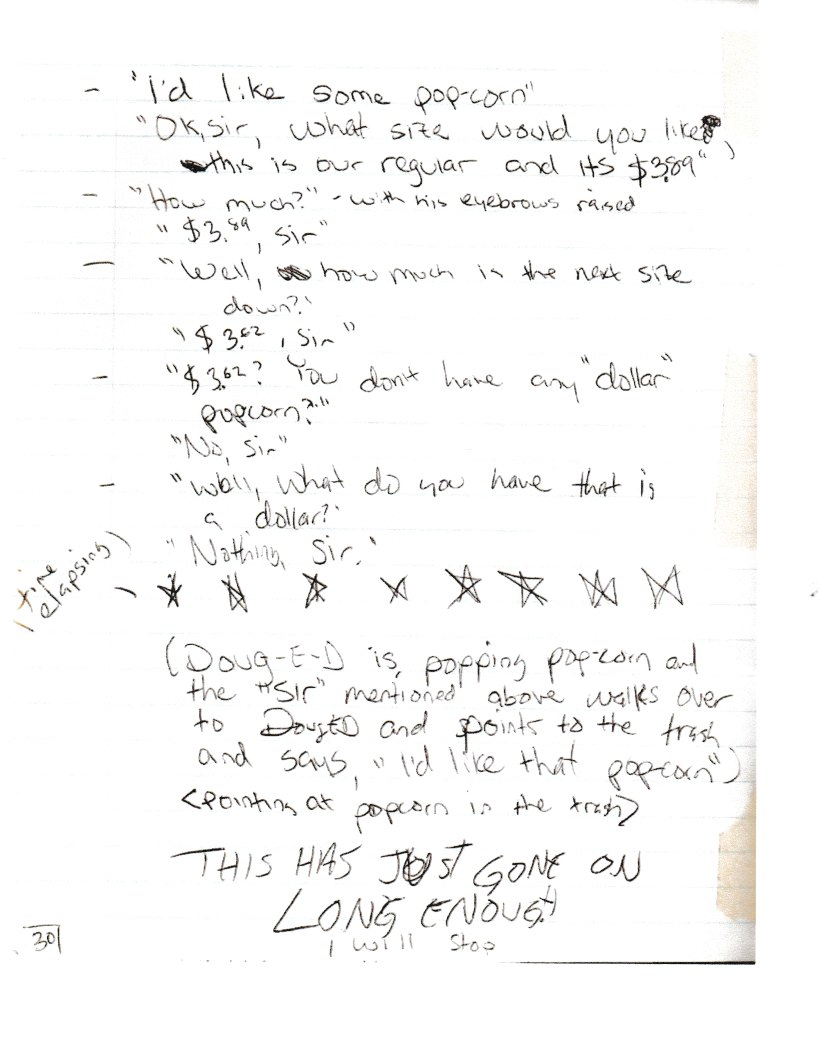 - "I'd like some pop-corn"
"Ok, sir, what size would you like,
this is our regular and its $3.89")
- "How much?" - with his eyebrows raised
"$3.89, sir"
- "Well, how much is the next size
down?"
"$3.62, sir"
- "$3.62? You don't have any "dollar"
popcorn?"
"No, sir"
- "Well, what do you have that is
a dollar?"
"Nothing, Sir."
(time
elapsing) -
(Doug-E-D is popping pop-corn and
the "Sir" mentioned above walks over
to DougED and points to the trash
and says, "I'd like that pop-corn")
<pointing at popcorn in the trash>
THIS HAS JUST GONE ON
LONG ENOUGH
I will stop
30